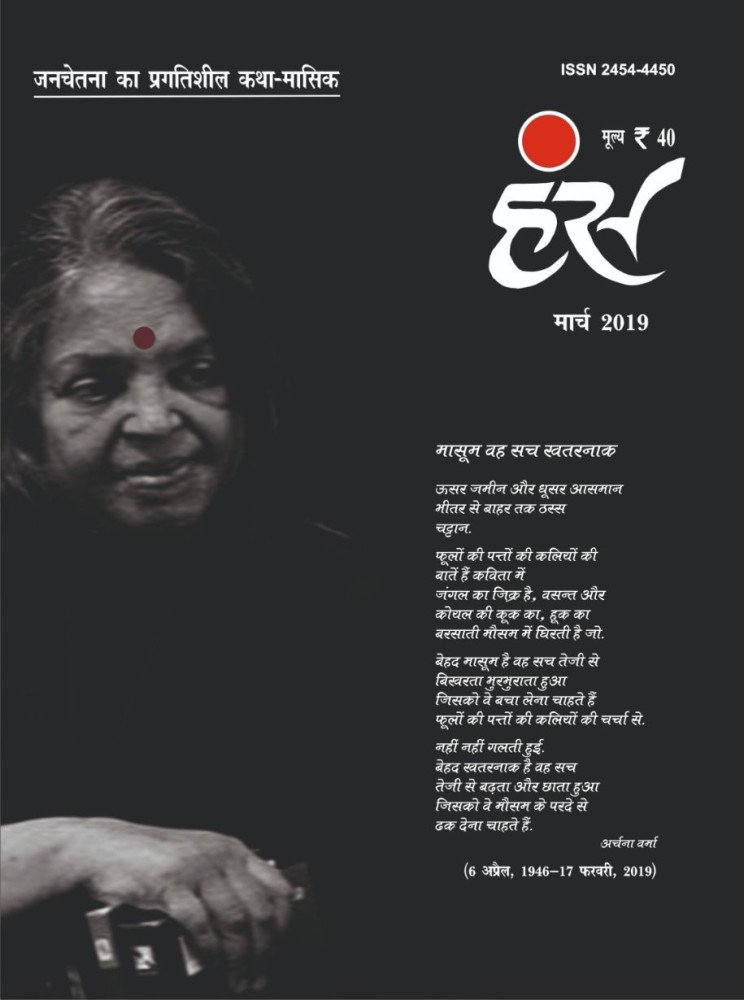 जनचेतना का प्रगतिशील कथा-मासिक
ISSN 2454-4450
मूल्य ₹ 40
हंस
मार्च 2019
मासूम वह सच खतरनाक
ऊसर जमीन और धूसर आसमान
भीतर से बाहर तक ठस्स
चट्टान.
फूलों की पत्तों की कलियों की
बातें हैं कविता में
जंगल का जिक्र है, वसन्त और
कोयल की कूक का, हूक का
बरसाती मौसम में घिरती है जो.
बेहद मासूम है वह सच तेजी से
बिखरता भुरभुराता हुआ
जिसको वे बचा लेना चाहते हैं
फूलों की पत्तों की कलियों की चर्चा से.
नहीं नहीं गलती हुई.
बेहद खतरनाक है वह सच
तेजी से बढ़ता और छाता हुआ
जिसको वे मौसम के परदे से
ढक देना चाहते हैं.
अर्चना वर्मा
(6 अप्रैल, 1946–17 फरवरी, 2019)